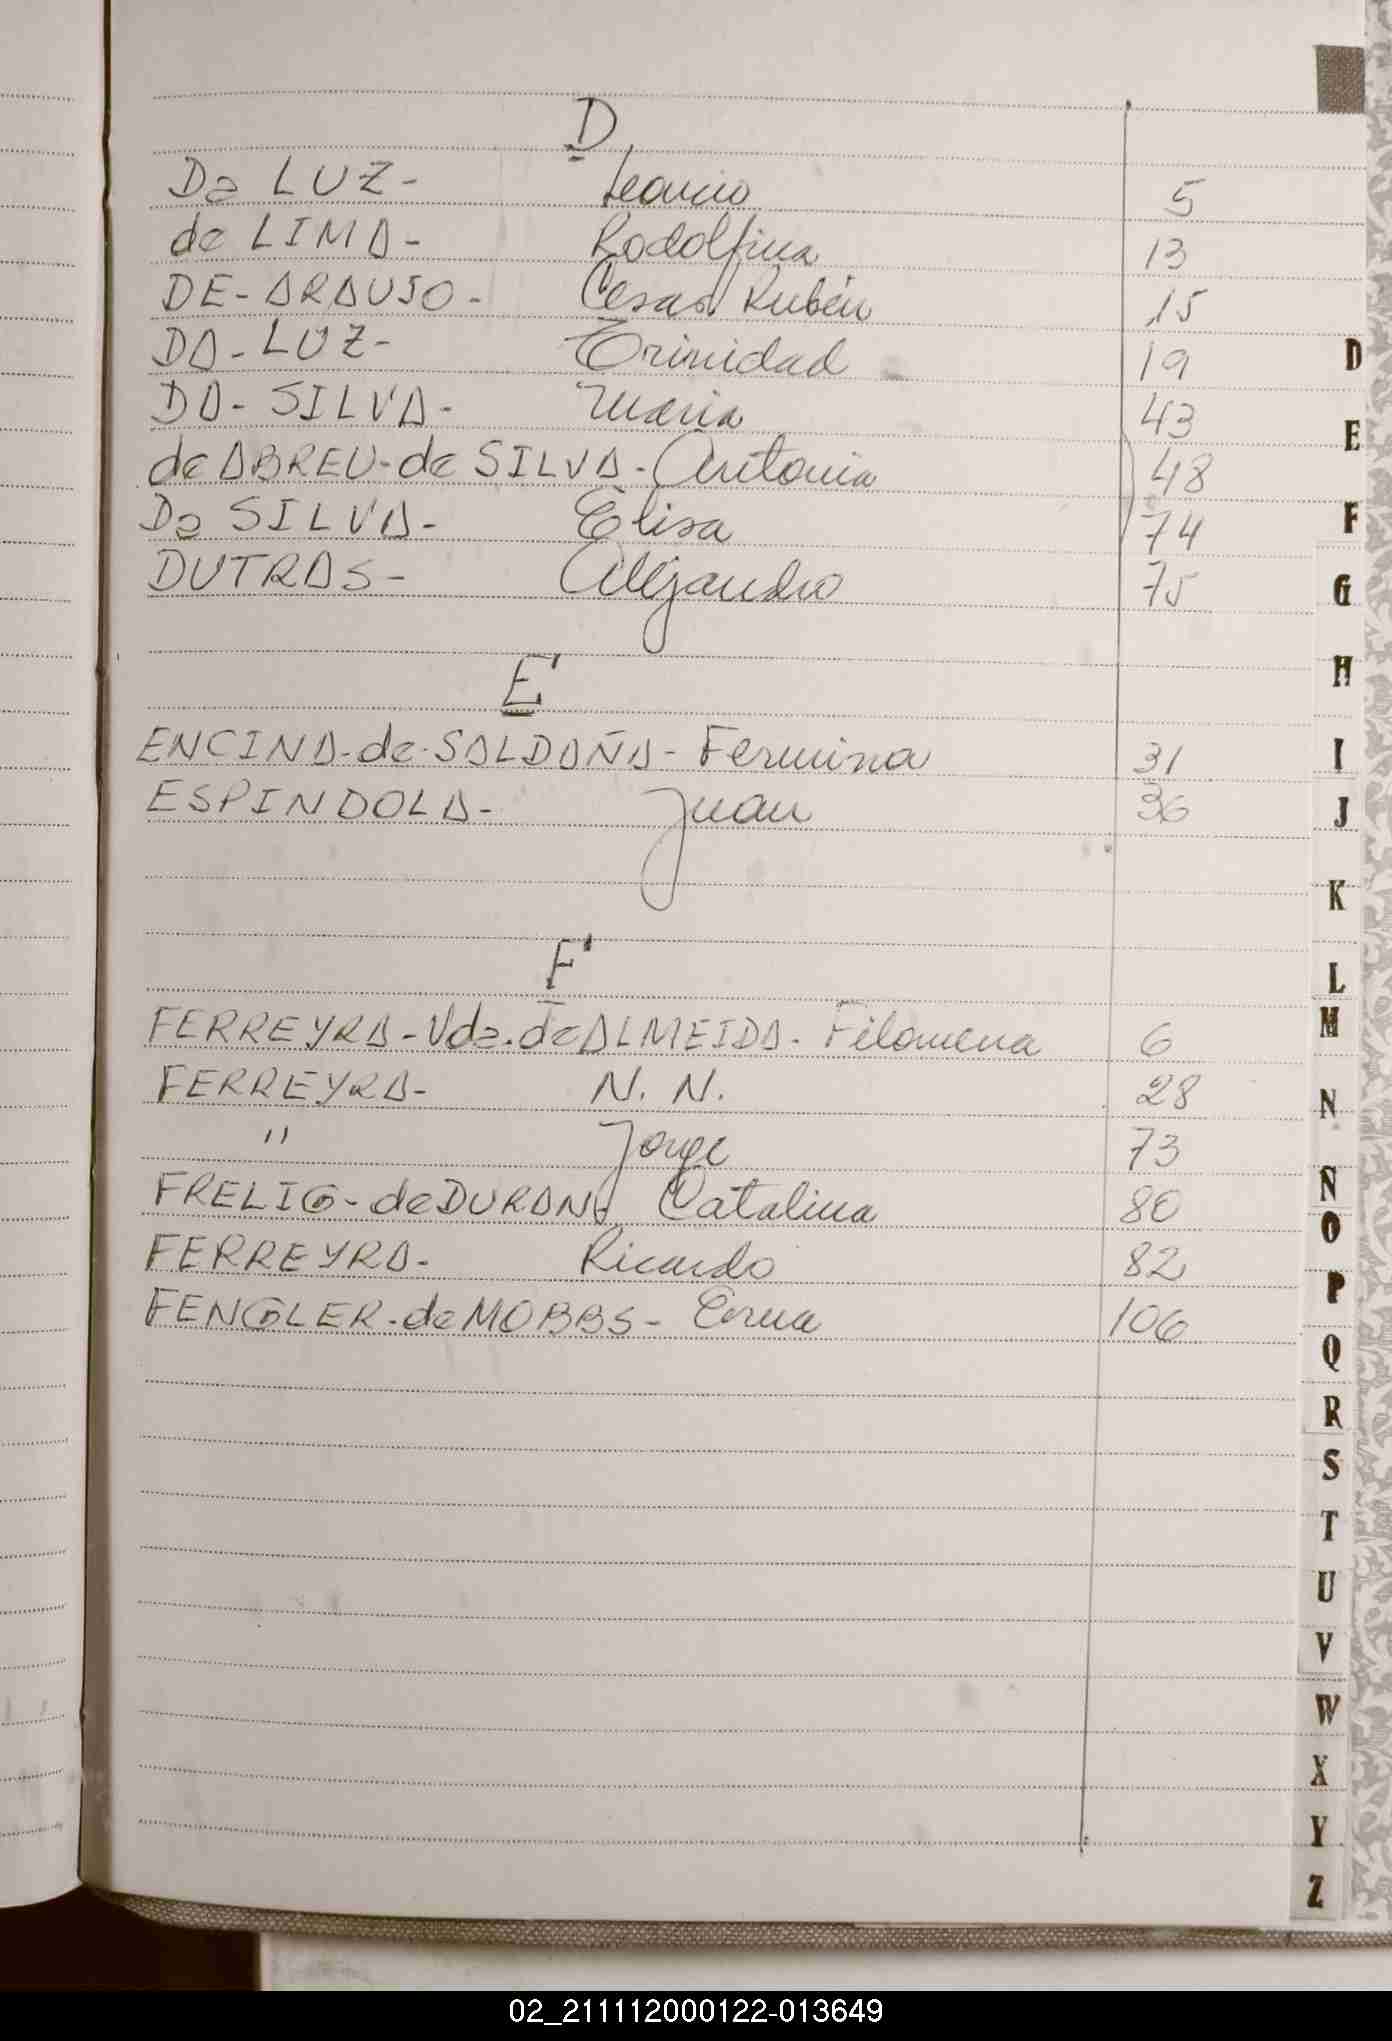 D
Da LUZ- 5
de LIMA- Rodolfina 13
DE-ARAUJO- Cesar Rubén 15
DA-LUZ- Trinidad 19
DA-SILVA- Maria 43
de ABREU-de SILVA- Antonia 48
Da SILVA- Elisa 74
DUTRAS- Alejandro 75
E
ENCINA-de-SALDAÑA- Fermina 31
ESPINDOLA- Juan 36
F
FERREYRA-Vda.de ALMEIDA- Filomena 6
FERREYRA- N. N. 28
" Jorge 73
FRELIG-de DURAN Catalina 80
FERREYRA- Ricardo 82
FENGLER-de MOBBS- Erna 106
D
E
F
G
H
I
J
K
L
M
N
Ñ
O
P
Q
R
S
T
U
V
W
X
Y
Z
02_211112000122-013649